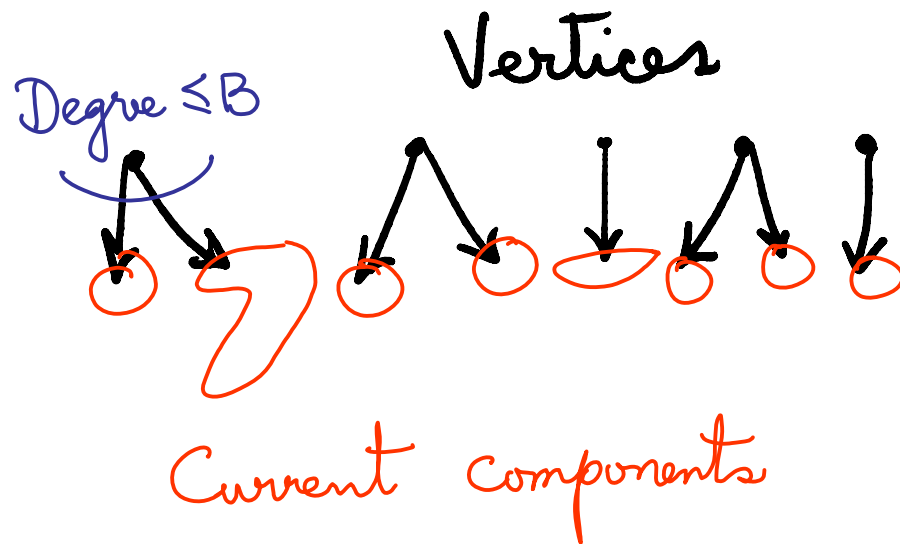 Vertices
Degre ≤B
Current components